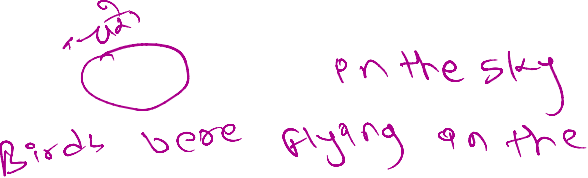 in the sky
Birds were flying on the